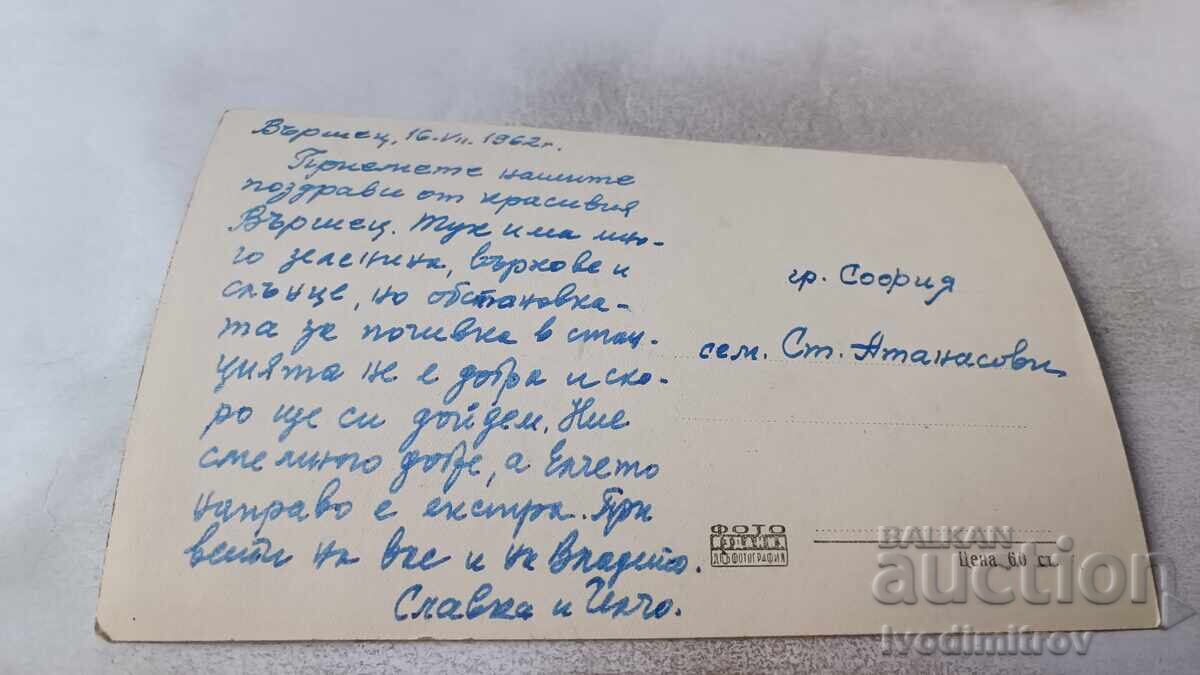 Вършец, 16.VII.1962 г.
Приемете нашите
поздрави от красивия
Вършец. Тук има мно-
го зеленина, върхове и
слънце, но обстановка-
та за почивка в стан-
цията не е добра и ско-
ро ще си дойдем. Ние
сме много добре, а Енчето
направо е екстра. При
вети на вас и на Владето.
Славка и Инчо.
гр. София
сем. Ст. Атанасови
ФОТО
ДЪРЖАВНА
ФОТОГРАФИЯ
Цена 60 ст.
BALKAN
auction
Ivodimitrov